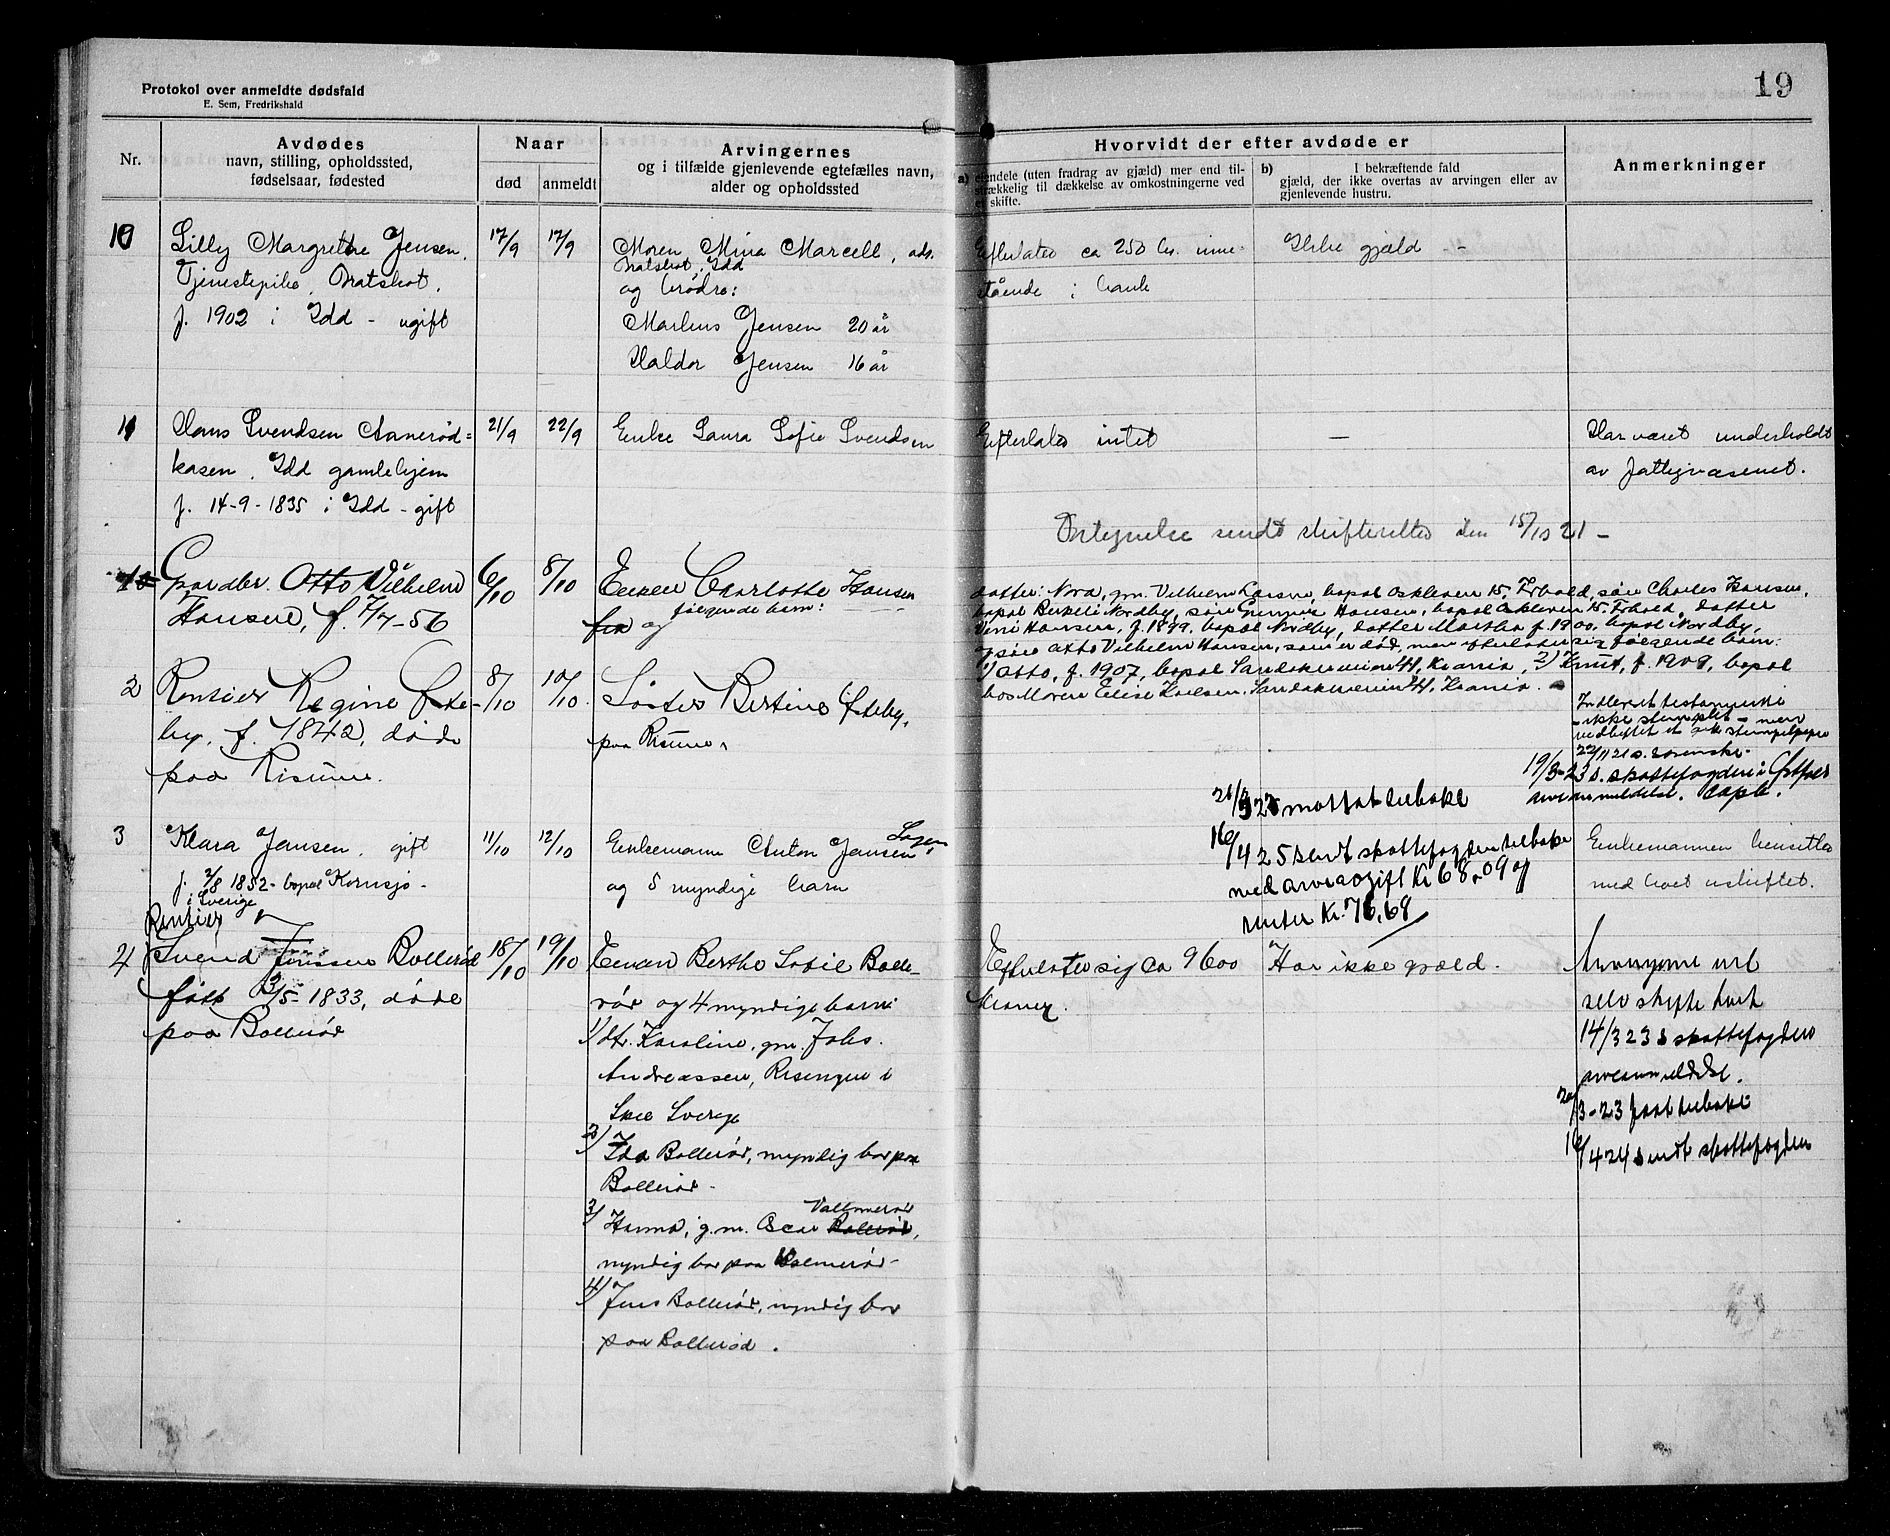 Protokol over anmeldte dødsfald
E. Sem, Fredrikshald
19
Nr.
Avdødes
navn, stilling, opholdssted,
fødselsaar, fødested
Naar
død
anmeldt
Arvingernes
og i tilfælde gjenlevende egtefælles navn,
alder og opholdssted
Hvorvidt der efter avdøde er
a) eiendele (uten fradrag av gjæld) mer end til-
strækkelig til dækkelse av omkostningerne ved
et skifte.
b) I bekræftende fald
gjæld, der ikke overtas av arvingen eller av
gjenlevende hustru.
Anmerkninger
10
Lilly Margrethe Jensen,
Tjenestepike, Bratskot,
f. 1902 i Idd - ugift
17/9
17/9
Moren Mina Marcell, adr.
Bratskot, Idd
og brødre:
Marlius Jensen 20 år
Haldor Jensen 16 år
Efterlater ca 250 kr. inne-
stående i bank
Ikke gjæld -
11
Hans Svendsen Aanerød-
kasen, Idd gamlehjem
f. 14-9-1835 i Idd - gift
21/9
22/9
Enke Laura Sofie Svendsen
Efterlater intet
-
Har været underholdt
av fattigvæsenet.
Fortegnelse sendt skifteretten den 15/10 21 -
Gaardbr. Otto Vilhelm
Hansen, f. 7/7-56
6/10
8/10
Enken Charlotte Hansen
og følgende barn:
datter: Nora, gm. Vilhelm Larsen, bopal Oskleven 15, Frhald, søn Charles Hansen,
bopal Berkeli Nordby, søn Gunnar Hansen, bopal Oskleven 15, Frhald, datter
Hansen, f. 1899, bopal Nordby, datter Martha f. 1900, bopal Nordby,
og søn Otto Vilhelm Hansen, som er død, men efterlater sig følgende barn:
1) Otto, f. 1907, bopal Sandakerveien 41, Krania, 2) Knut, f. 1909, bopal
hos Moren Elise Karlsen, Sandakerveien 41, Krania.
2
Rentier Regine Øste-
by, f. 1842, døde
paa Risum.
8/10
10/10
Søster Bertine Østeby,
paa Risum.
Indleveret testamente
- ikke stemplet - men
vedheftet et ark stempelpapir
22/11 21 s. sorensk.
19/3-23 s. skattefogden i Østfold
arveanmeldelse. Capt.
21/3 23 mottat tilbake
16/4 25 sendt skattefogden tilbake
med arveavgift Kr 68,09 og
renter Kr. 76,68
3
Klara Jansen, gift
f. 2/8 1852 - bopal Kornsjø -
i Sverige
11/10
12/10
Enkemann Anton Jansen
og 5 myndige barn
Enkemannen hensitter
med boet uskiftet.
4
Rentier
Svend Jenssen Bollerød
født 3/5-1833, døde
paa Bollerød
18/10
19/10
Enken Berthe Sofie Bolle-
rød og 4 myndige barn:
1) dtr. Karoline, gm. Johs.
Andreassen, Risingen i
Skee Sverige
2) Ida Bollerød, myndig bor paa
Bollerød -
3) Hanna, g.m. Oscar Bollerød,
Vallmerød
myndig bor paa Holmerød -
4) Jens Bollerød, myndig bor
paa Bollerød.
Efterlater sig ca 9600
Kroner.
Har ikke gjæld.
Arvingerne vil
selv skifte boet
14/3 23 s skattefogden
arveanmeldelse.
20/3-23 faat tilbake
16/4 24 sendt skattefogden